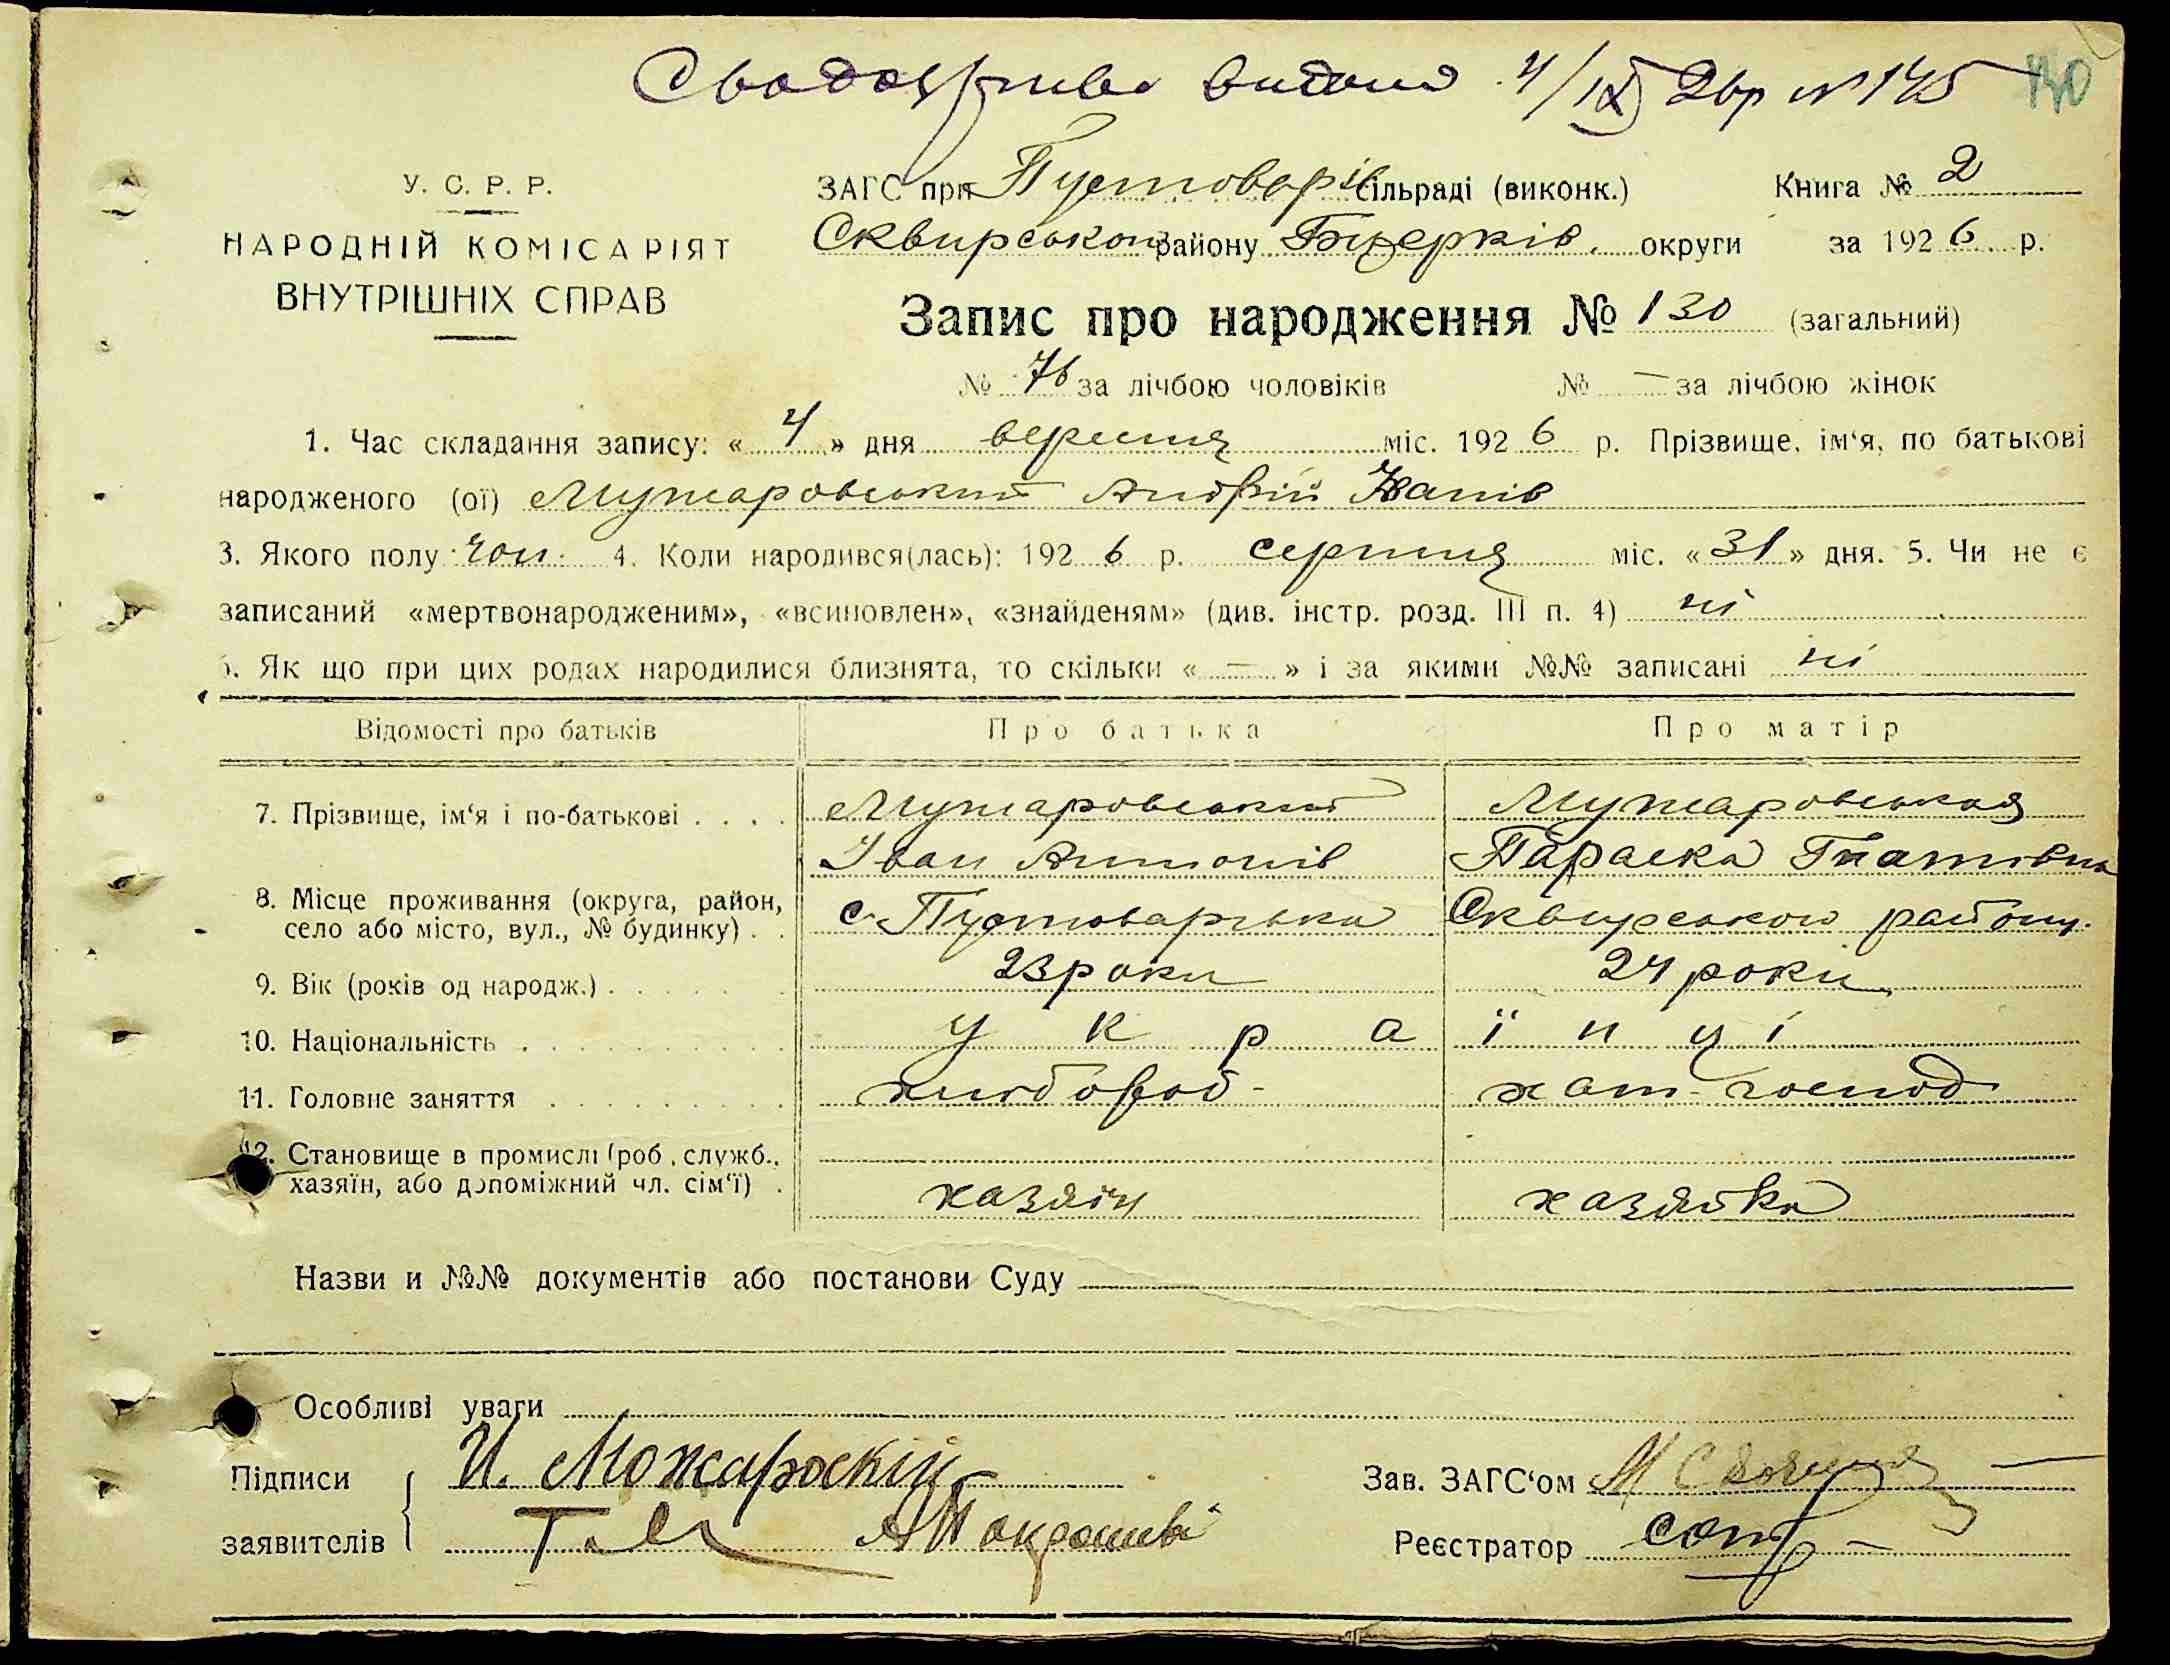 видана 4/IX 26р № 145 130
У. С. Р. Р.
НАРОДНІЙ КОМІСАРІЯТ
ВНУТРІШНІХ СПРАВ
ЗАГС при Пустоварів сільраді (виконк.) Книга № 2
Сквирського району Біцерків. округи за 1926 р.
Запис про народження № 130 (загальний)
№ 76 за лічбою чоловіків № — за лічбою жінок
1. Час складання запису: « 4 » дня вересня міс. 1926 р. Прізвище, ім'я, по батькові
народженого (ої) Мужаровський Андрій Іванів
3. Якого полу: чол. 4. Коли народився(лась): 1926 р. серпня міс. « 31 » дня. 5. Чи не є
записаний «мертвонародженим», «всиновлен», «знайденям» (див. інстр. розд. III п. 4) ні
6. Як що при цих родах народилися близнята, то скільки « — » і за якими №№ записані ні
Відомості про батьків Про батька Про матір
7. Прізвище, ім'я і по-батькові . . . . Мужаровський Мужаровська
Іван Антонів Параска Гнатівна
8. Місце проживання (округа, район,
село або місто, вул., № будинку) . . с. Пустоварівка Сквирського району.
9. Вік (років од народж.) . . . . . 23 роки 24 роки
10. Національність . . . . . . . . . . українці
11. Головне заняття . . . . . . . . . хлібороб- хат-господ
12. Становище в промислі (роб., служб.,
хазяїн, або допоміжний чл. сім'ї) . хазяїн хазяйка
Назви и №№ документів або постанови Суду
Особливі уваги
Підписи И. Можароскій Зав. ЗАГС'ом
заявителів Реєстратор